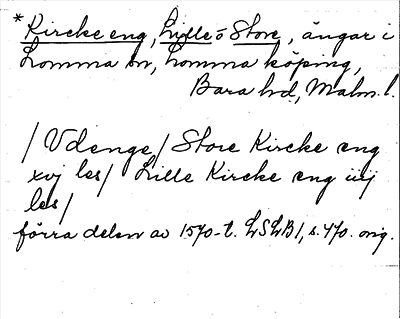 *Kircke eng, Lille o Store, ängar i
Lomma sn, Lomma köping,
Bara hd, Malm. l.
/Vdenge/ Store Kircke eng
xvj les/ Lille Kircke eng iiij
les/
förra delen av 1570-t. LSLB1, s. 470. orig.